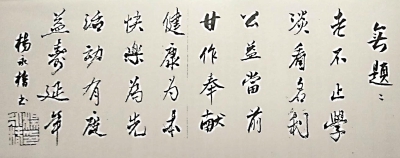 無題:
老不止學
淡看名利
公益當前
甘作奉献
健康为本
快樂為先
活动有度
益壽延年
楊永楷书